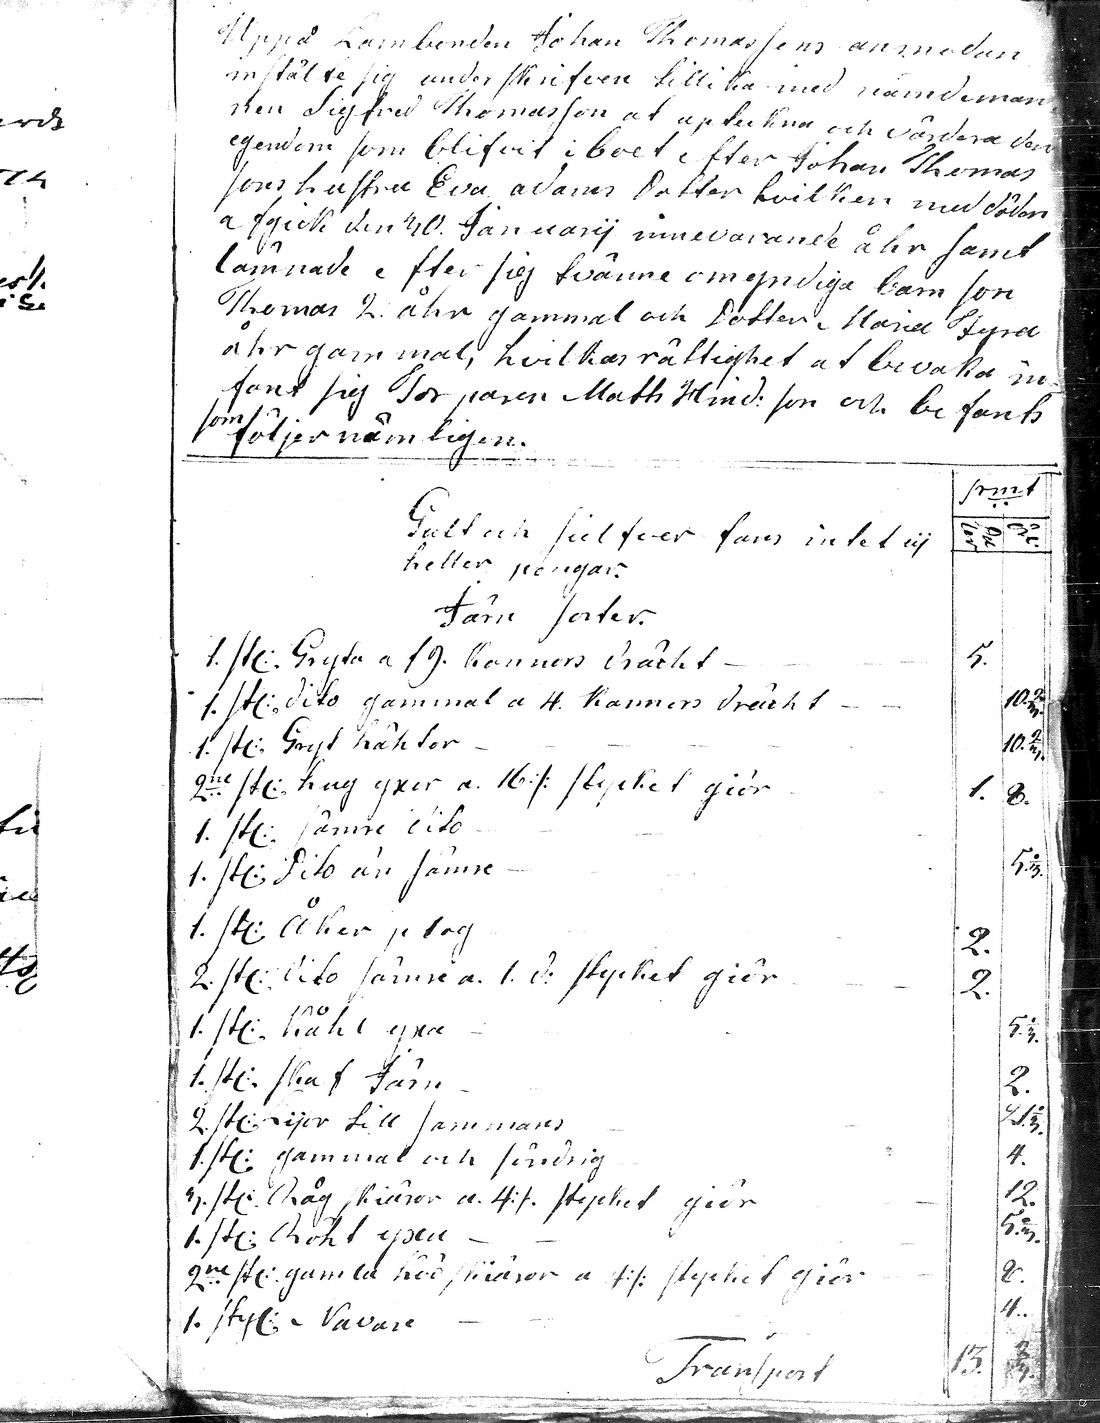 Uppå Lambonden Johan Thomassons anmodan
instälte sig underskrifven tillika med nämdeman
nen Sigfred Thomasson at uptekna och värdera den
egendom som blifvit i boet efter Johan Thomas
sons hustru Eva adams Dotter hvilken med döden
afgick den 30. Januarij innevarande åhr samt
lämnade efter sig tvänne omyndiga barn son
Thomas 2. åhr gammal och Dotter Maria fyra
åhr gammal, hvilkas rättighet at bevaka in-
fant sig Torparen Matts Hind: son och befants
som följer nämligen.
srmt
Gult och silfver fans intet ij
heller pengar.
Järn sorter.
1. st: Gryta a 19. kannors drächt — 5.
1. st: dito gammal a 4. kannors drächt — 10. 2/3.
1. st: Gryt häktor — 10. 2/3.
2ne st: hug yxor a. 16:/: stycket giör 1. 8.
1. st: sämre dito —
1. st: Dito än sämre — 5. 1/3.
1. st: Åker plog 2.
2. st: dito sämre a. 1. d: stycket giör 2.
1. st: håhl yxa — 5. 1/3.
1. st: skaf Järn 2.
2. st: Lijor till sammans 21. 1/3.
1. st: gammal och söndrig 4.
3. st: Råg skiäror a. 4:/: stycket giör 12.
1. st: Röht yxa — 5. 1/3.
2ne st: gamla höö skiäror a 4:/: stycket giör 8.
1. styc: Navare — 4.
Transport 13. 2/3.